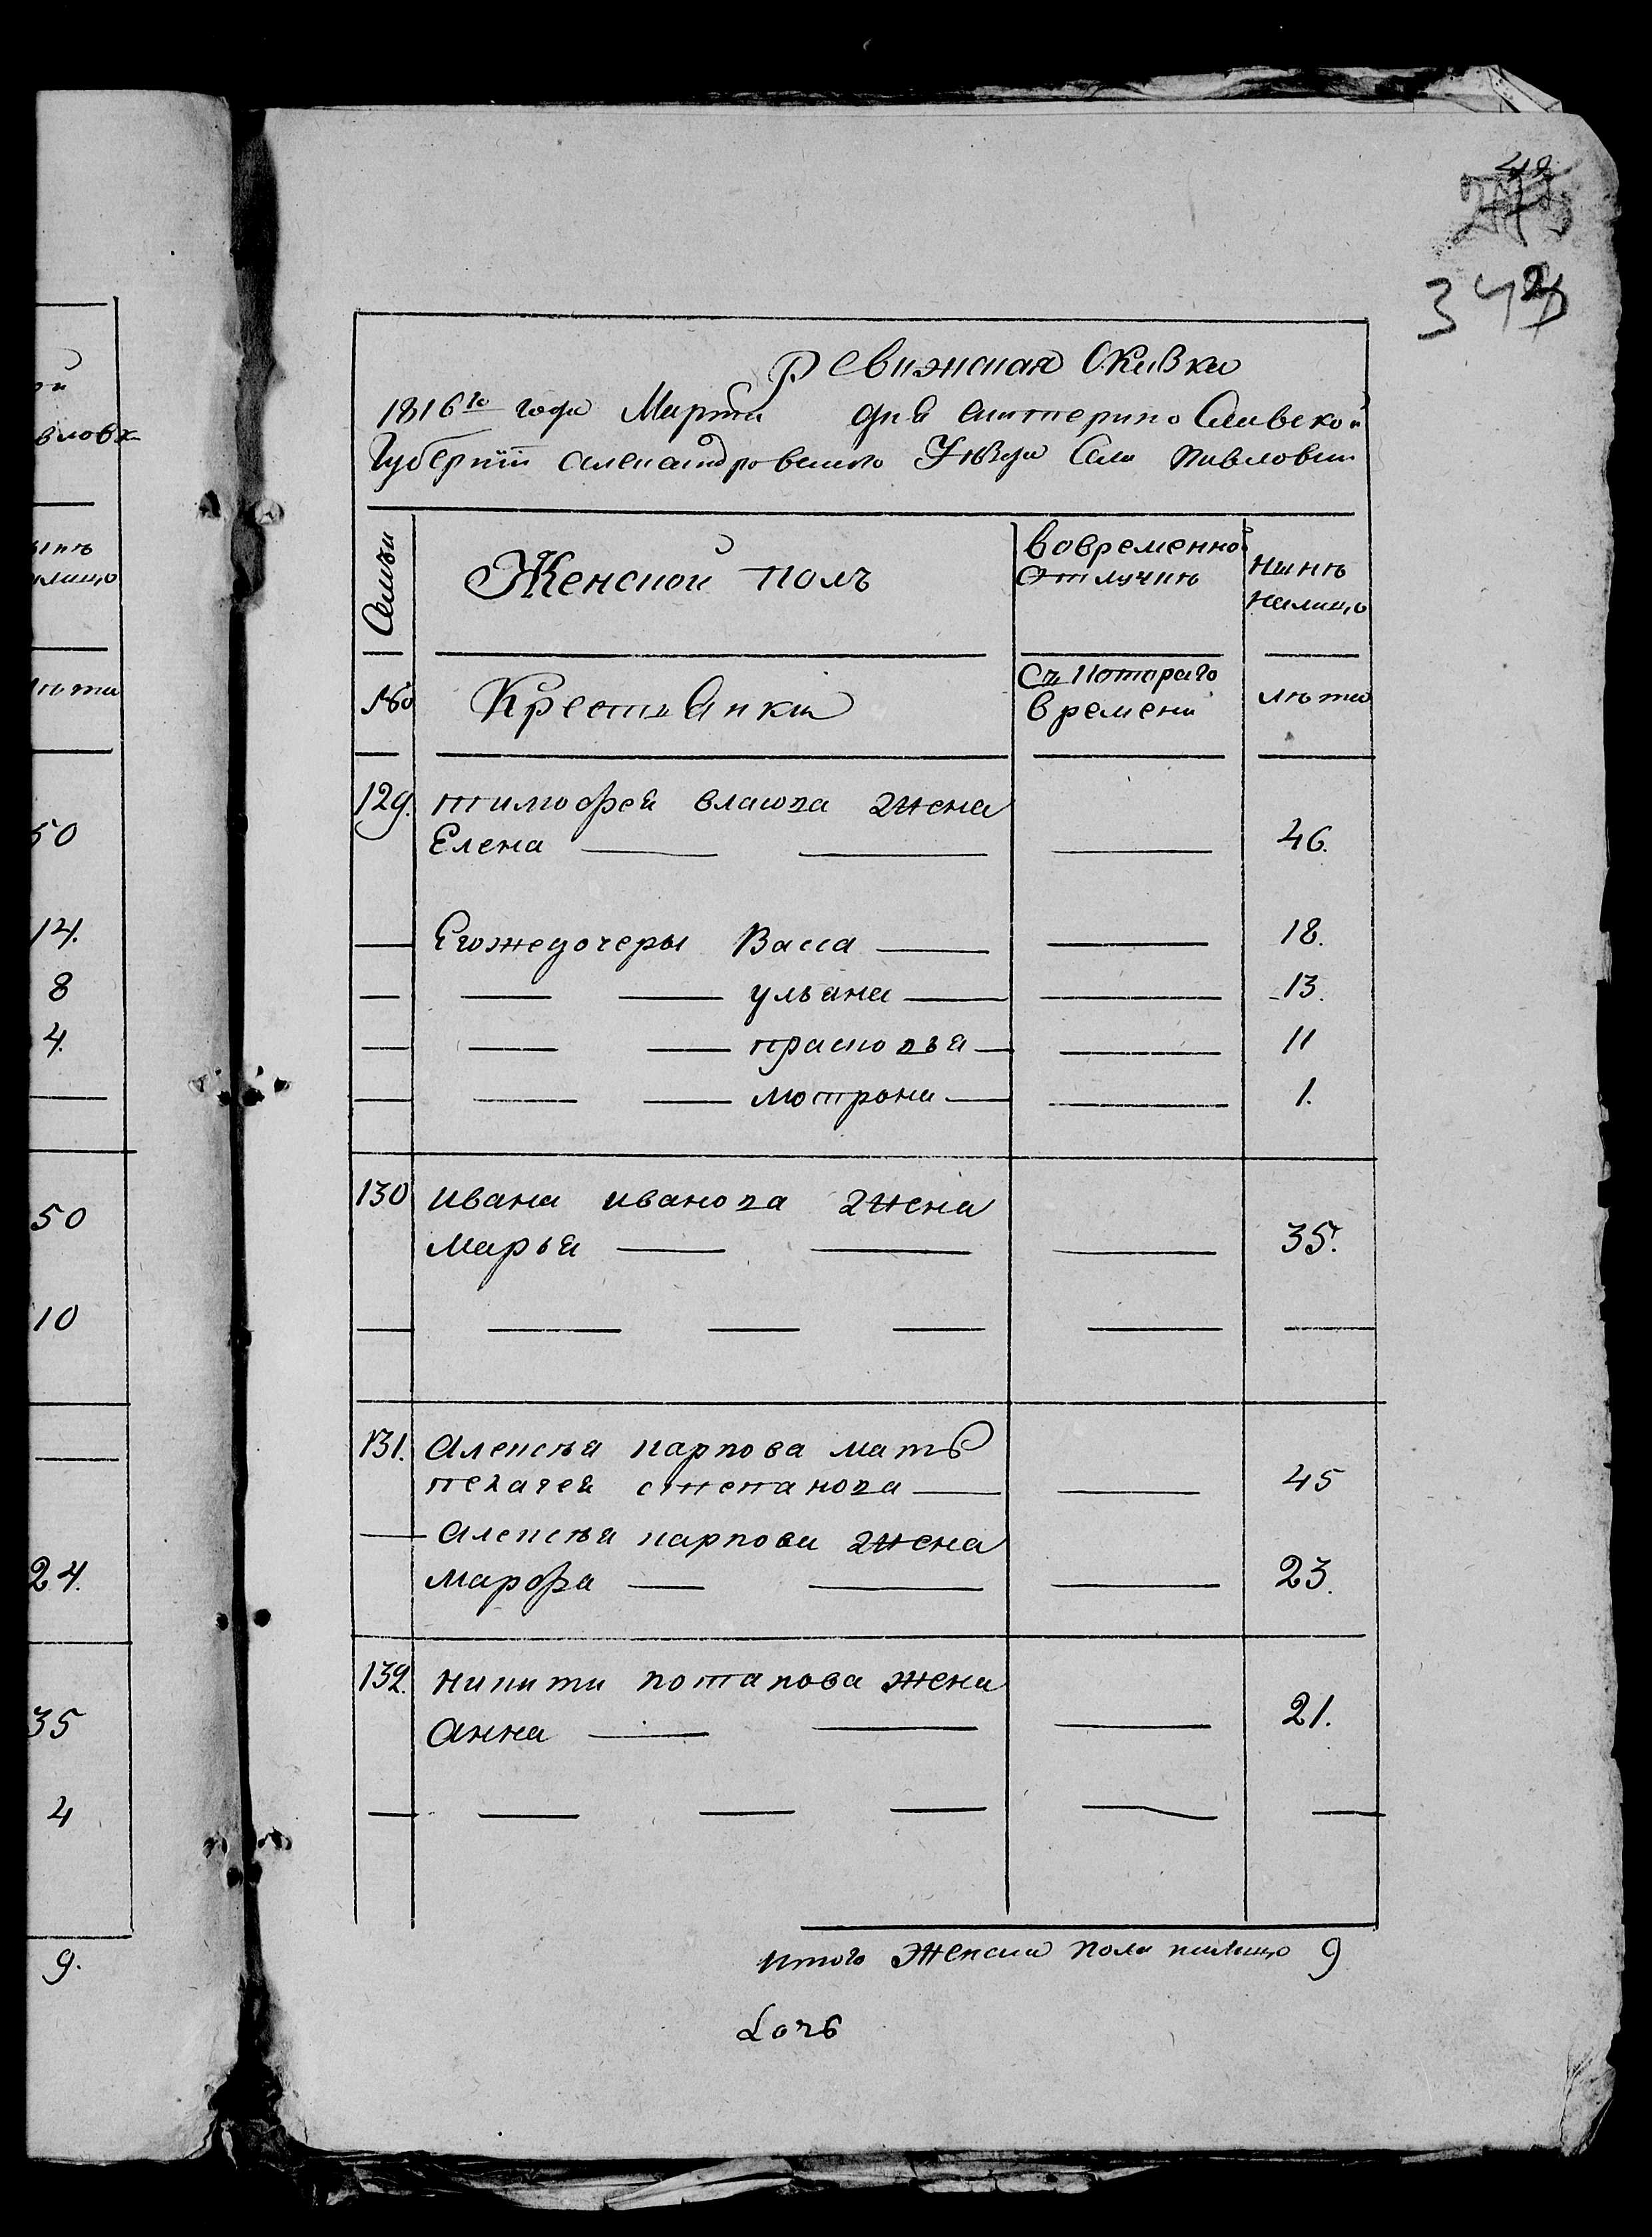 342
Ревижская Скаска
1816го года Марта дня екатерино Славской
Губернїи александровского Уѣзда Села павловки
Семьи
Женской полъ
вовременной
Отлучкѣ
нынѣ
налицо
№
Крестьянки
Съ Котораго
времени
лѣта
129. тимофея власова жена
Елена 46.
Егожедочеры Васса 18.
ульяна 13.
прасковья 11
мотрона 1.
130 ивана иванова жена
марья 35.
131. алексѣя карпова мать
пелагея степанова 45
алексѣя карпова жена
марфа 23.
132. никиты потапова жена
анна 21.
итого женска пола налицо 9
50
14.
8
4.
50
10
24.
35
4
9.